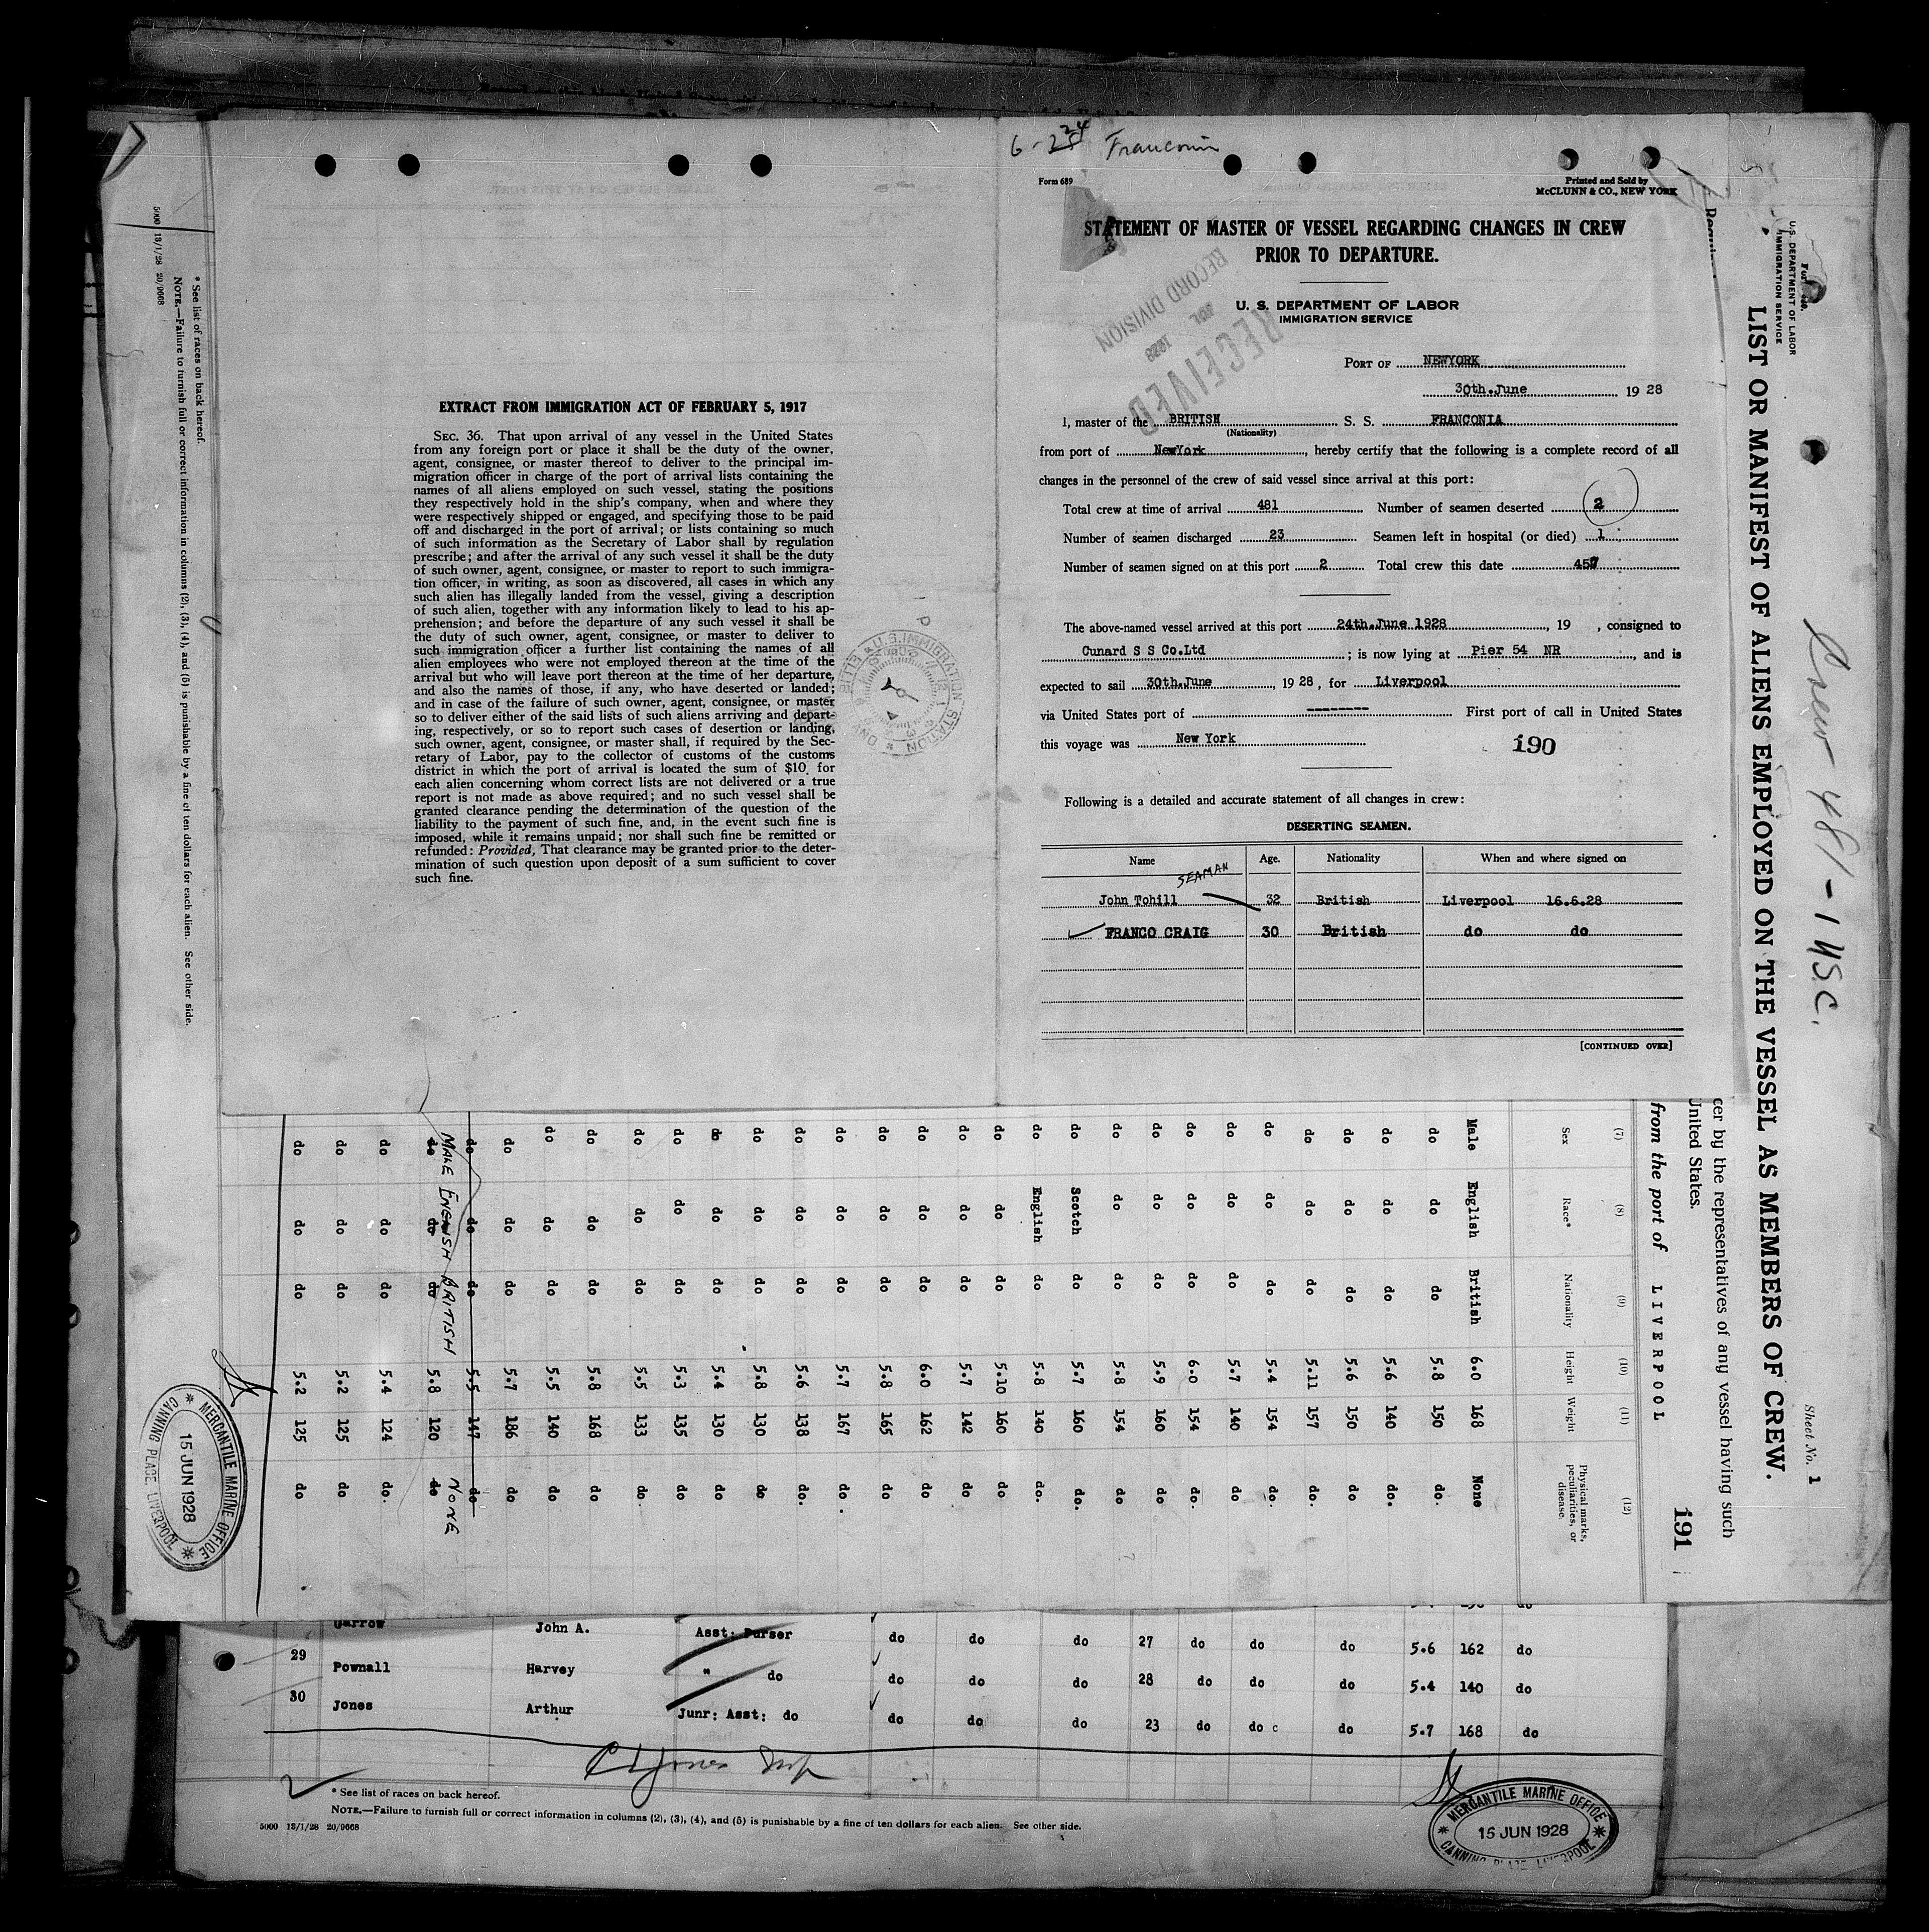 6-24 Franconia
Form 689
Printed and Sold by
McCLUNN & CO., NEW YORK
STATEMENT OF MASTER OF VESSEL REGARDING CHANGES IN CREW
PRIOR TO DEPARTURE.
U. S. DEPARTMENT OF LABOR
IMMIGRATION SERVICE
RECEIVED
JUL 1928
RECORD DIVISION
PORT OF NEWYORK
30th.June 19 28
I, master of the BRITISH S. S. FRANCONIA
(Nationality)
from port of NewYork, hereby certify that the following is a complete record of all
changes in the personnel of the crew of said vessel since arrival at this port:
Total crew at time of arrival 481 Number of seamen deserted 2
Number of seamen discharged 23 Seamen left in hospital (or died) 1
Number of seamen signed on at this port 2 Total crew this date 457
The above-named vessel arrived at this port 24th.June 1928, 19 , consigned to
Cunard S S Co.Ltd ; is now lying at Pier 54 NR, and is
expected to sail 30th.June, 19 28, for Liverpool
via United States port of -------- First port of call in United States
this voyage was New York
190
Following is a detailed and accurate statement of all changes in crew:
DESERTING SEAMEN.
Name Age. Nationality When and where signed on
SEAMAN
John Tohill 32 British Liverpool 16.6.28
FRANCO CRAIG 30 British do do
[CONTINUED OVER]
EXTRACT FROM IMMIGRATION ACT OF FEBRUARY 5, 1917
SEC. 36. That upon arrival of any vessel in the United States
from any foreign port or place it shall be the duty of the owner,
agent, consignee, or master thereof to deliver to the principal im-
migration officer in charge of the port of arrival lists containing the
names of all aliens employed on such vessel, stating the positions
they respectively hold in the ship's company, when and where they
were respectively shipped or engaged, and specifying those to be paid
off and discharged in the port of arrival; or lists containing so much
of such information as the Secretary of Labor shall by regulation
prescribe; and after the arrival of any such vessel it shall be the duty
of such owner, agent, consignee, or master to report to such immigra-
tion officer, in writing, as soon as discovered, all cases in which any
such alien has illegally landed from the vessel, giving a description
of such alien, together with any information likely to lead to his ap-
prehension; and before the departure of any such vessel it shall be
the duty of such owner, agent, consignee, or master to deliver to
such immigration officer a further list containing the names of all
alien employees who were not employed thereon at the time of the
arrival but who will leave port thereon at the time of her departure,
and also the names of those, if any, who have deserted or landed;
and in case of the failure of such owner, agent, consignee, or master
so to deliver either of the said lists of such aliens arriving and depart-
ing, respectively, or so to report such cases of desertion or landing,
such owner, agent, consignee, or master shall, if required by the Sec-
retary of Labor, pay to the collector of customs of the customs
district in which the port of arrival is located the sum of $10 for
each alien concerning whom correct lists are not delivered or a true
report is not made as above required; and no such vessel shall be
granted clearance pending the determination of the question of the
liability to the payment of such fine, and, in the event such fine is
imposed, while it remains unpaid; nor shall such fine be remitted or
refunded: Provided, That clearance may be granted prior to the deter-
mination of such question upon deposit of a sum sufficient to cover
such fine.
Crew 481-1 USC.
U.S. DEPARTMENT OF LABOR
IMMIGRATION SERVICE
Sheet No. 1
LIST OR MANIFEST OF ALIENS EMPLOYED ON THE VESSEL AS MEMBERS OF CREW.
cer by the representatives of any vessel having such
United States.
191
from the port of LIVERPOOL
(7) (8) (9) (10) (11) (12)
Sex Race* Nationality Height Weight Physical marks, peculiarities, or disease.
Male English British 6.0 168 None
do do do 5.8 150 do.
do do do 5.6 140 do.
do do do 5.6 150 do
do do do 5.11 157 do.
do do do 5.4 154 do.
do do do 5.7 140 do
do do do 6.0 154 do.
do do do 5.9 160 do
do do do 5.8 154 do
do Scotch do 5.7 160 do.
do English do 5.8 140 do.
do do do 5.10 160 do
do do do 5.7 142 do
do do do 6.0 162 do
do do do 5.8 165 do
do do do 5.7 167 do.
do do do 5.6 138 do.
do do do 5.8 130 do
do do do 5.4 130 do
do do do 5.3 135 do
do do do 5.5 133 do.
do do do 5.8 168 do
do do do 5.5 140 do
do do do 5.7 186 do
do do do 5.5 147 do
MALE ENGLISH BRITISH NONE
do do do 5.8 120 do
do do do 5.4 124 do.
do do do 5.2 125 do
do do do 5.2 125 do
MERCANTILE MARINE OFFICE
15 JUN 1928
CANNING PLACE LIVERPOOL
* See list of races on back hereof.
NOTE.—Failure to furnish full or correct information in columns (2), (3), (4), and (5) is punishable by a fine of ten dollars for each alien. See other side.
5000 13/1/28 20/9668
Garrow John A. Asst: Purser do do do 27 do do do 5.6 162 do
29 Pownall Harvey " do do do do 28 do do do 5.4 140 do
30 Jones Arthur Junr: Asst: do do do do 23 do do do 5.7 168 do
* See list of races on back hereof.
NOTE.—Failure to furnish full or correct information in columns (2), (3), (4), and (5) is punishable by a fine of ten dollars for each alien. See other side.
5000 13/1/28 20/9668
MERCANTILE MARINE OFFICE
15 JUN 1928
CANNING PLACE LIVERPOOL